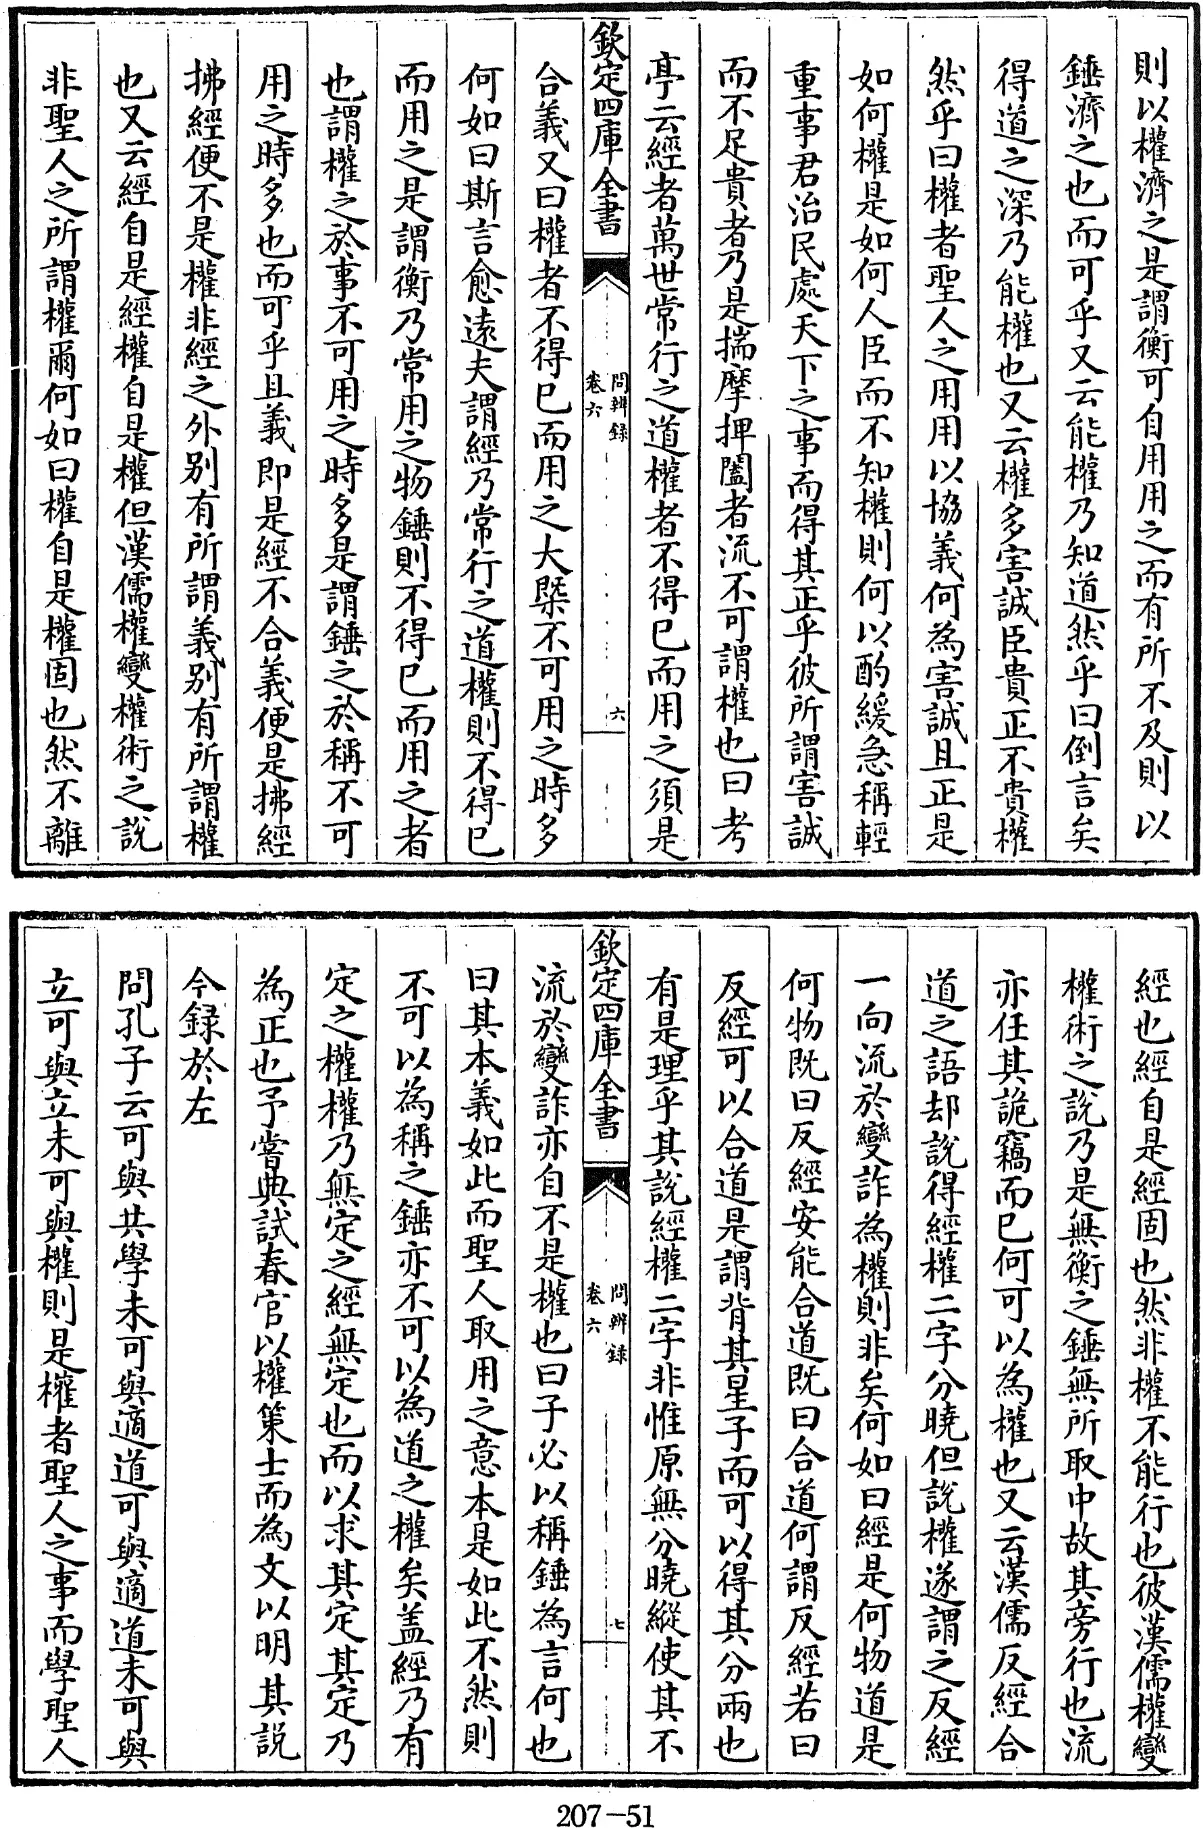 則以權濟之是謂衡可自用用之而有所不及則以
錘濟之也而可乎又云能權乃知道然乎曰倒言矣
得道之深乃能權也又云權多害誠臣貴正不貴權
然乎曰權者聖人之用用以協義何為害誠且正是
如何權是如何人臣而不知權則何以酌緩急稱輕
重事君治民處天下之事而得其正乎彼所謂害誠
而不足貴者乃是揣摩押闔者流不可謂權也曰考
亭云經者萬世常行之道權者不得已而用之須是
欽定四庫全書
問辨錄
卷六
六
合義又曰權者不得已而用之大槩不可用之時多
何如曰斯言愈遠夫謂經乃常行之道權則不得已
而用之是謂衡乃常用之物錘則不得已而用之者
也謂權之於事不可用之時多是謂錘之於稱不可
用之時多也而可乎且義即是經不合義便是拂經
拂經便不是權非經之外別有所謂義別有所謂權
也又云經自是經權自是權但漢儒權變權術之說
非聖人之所謂權爾何如曰權自是權固也然不離
經也經自是經固也然非權不能行也彼漢儒權變
權術之說乃是無衡之錘無所取中故其旁行也流
亦任其詭竊而已何可以為權也又云漢儒反經合
道之語却說得經權二字分曉但說權遂謂之反經
一向流於變詐為權則非矣何如曰經是何物道是
何物既曰反經安能合道既曰合道何謂反經若曰
反經可以合道是謂背其星子而可以得其分兩也
有是理乎其說經權二字非惟原無分曉縱使其不
欽定四庫全書
問辨錄
卷六
七
流於變詐亦自不是權也曰子必以稱錘為言何也
曰其本義如此而聖人取用之意本是如此不然則
不可以為稱之錘亦不可以為道之權矣盖經乃有
定之權權乃無定之經無定也而以求其定其定乃
為正也予嘗典試春官以權策士而為文以明其説
今録於左
問孔子云可與共學未可與適道可與適道未可與
立可與立未可與權則是權者聖人之事而學聖人
207-51